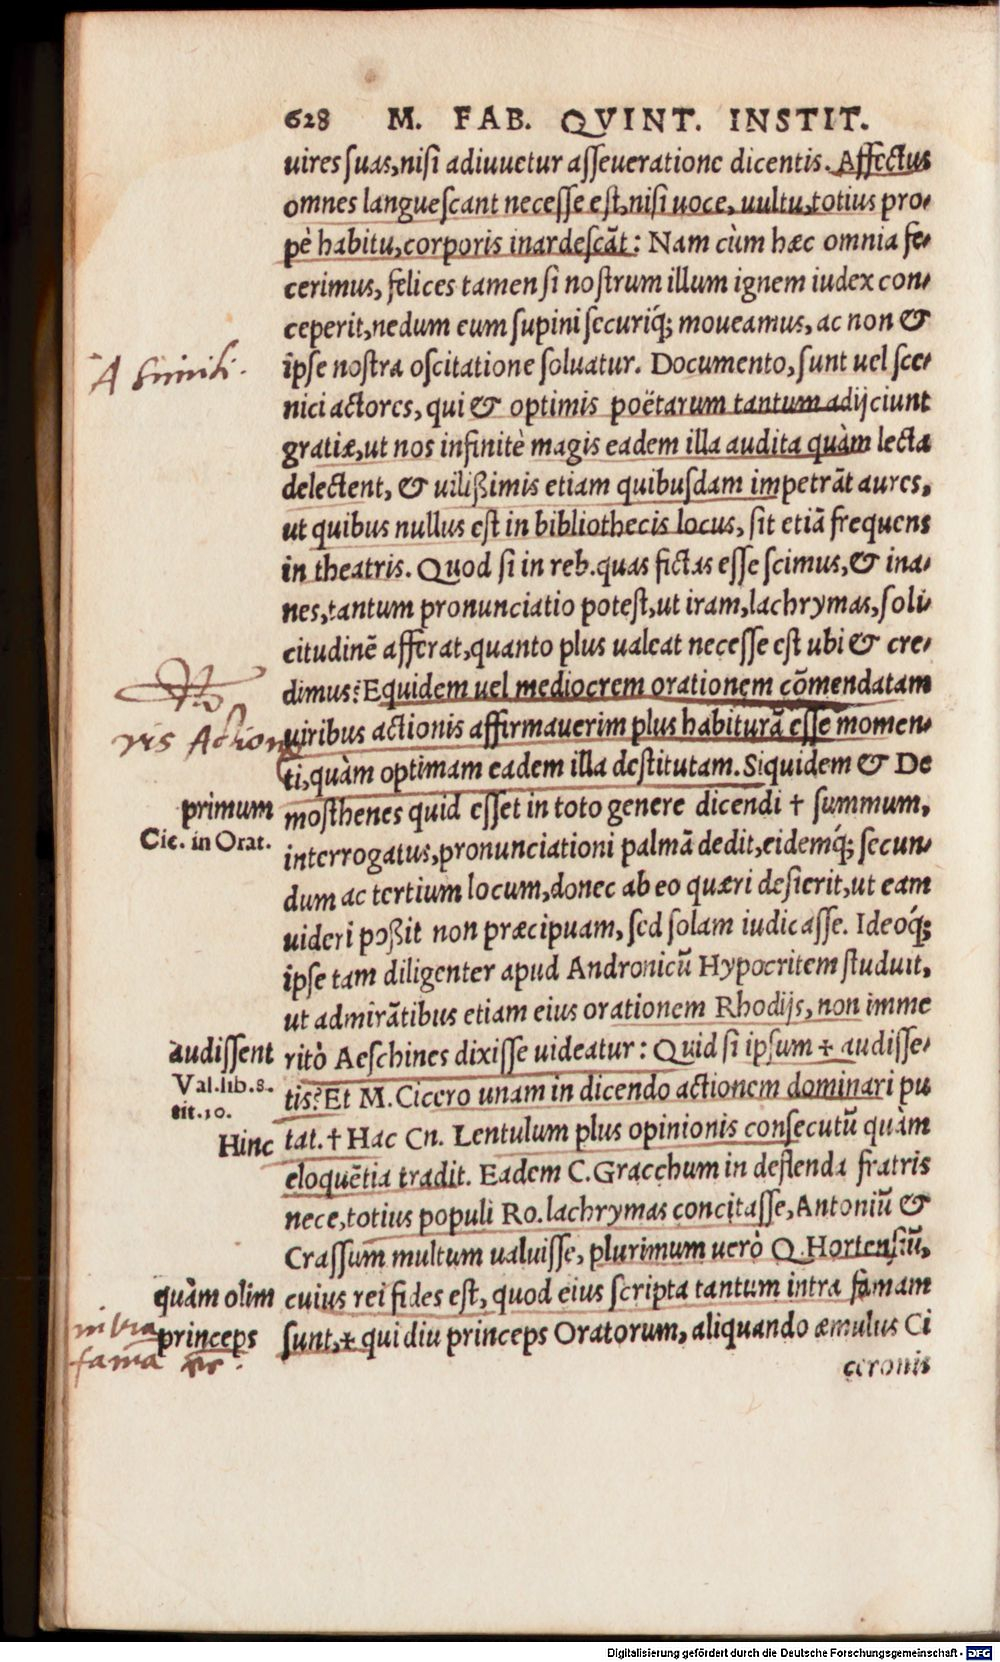 628 M. FAB. QVINT. INSTIT.
uires ſuas,niſi adiuuetur aſſeueratione dicentis. Affectus
omnes langueſcant neceſſe eſt,niſi uoce, uultu,totius pro-
pè habitu,corporis inardeſcãt: Nam cùm hæc omnia fe-
cerimus, felices tamen ſi noſtrum illum ignem iudex con-
ceperit,nedum eum ſupini ſecuriq́; moueamus, ac non &
ipſe noſtra oſcitatione ſoluatur. Documento, ſunt uel ſce-
A simili.
nici actores, qui & optimis poëtarum tantum adijciunt
gratiæ,ut nos infinitè magis eadem illa audita quàm lecta
delectent, & uilißimis etiam quibuſdam impetrãt aures,
ut quibus nullus eſt in bibliothecis locus, ſit etiã frequens
in theatris. Quod ſi in reb.quas fictas eſſe ſcimus,& ina-
nes,tantum pronunciatio poteſt,ut iram,lachrymas,ſoli-
citudinẽ afferat,quanto plus ualeat neceſſe eſt ubi & cre-
dimus? Equidem uel mediocrem orationem cõmendatam
uiribus actionis affirmauerim plus habiturã eſſe momen-
vis Action
ti,quàm optimam eadem illa deſtitutam. Siquidem & De
primum
moſthenes quid eſſet in toto genere dicendi † ſummum,
Cic. in Orat.
interrogatus,pronunciationi palmã dedit,eidemq́; ſecun-
dum ac tertium locum,donec ab eo quæri deſierit,ut eam
uideri poßit non præcipuam, ſed ſolam iudicaſſe. Ideoq́;
ipſe tam diligenter apud Andronicũ Hypocritem ſtuduit,
ut admirãtibus etiam eius orationem Rhodijs, non imme
audiſſent
ritò Aeſchines dixiſſe uideatur: Quid ſi ipſum ✢ audiſſe-
Val.lib.8.
tit.10.
tis? Et M. Cicero unam in dicendo actionem dominari pu
Hinc
tat. † Hac Cn. Lentulum plus opinionis conſecutũ quàm
eloquẽtia tradit. Eadem C. Gracchum in deflenda fratris
nece,totius populi Ro. lachrymas concitaſſe, Antoniũ &
Craſſum multum ualuiſſe, plurimum uerò Q. Hortenſiũ,
quàm olim
cuius rei fides eſt, quod eius ſcripta tantum intra famam
intra
princeps
ſunt,✢ qui diu princeps Oratorum, aliquando æmulus Ci
fama
ceronis
Digitalisierung gefördert durch die Deutsche Forschungsgemeinschaft - DFG